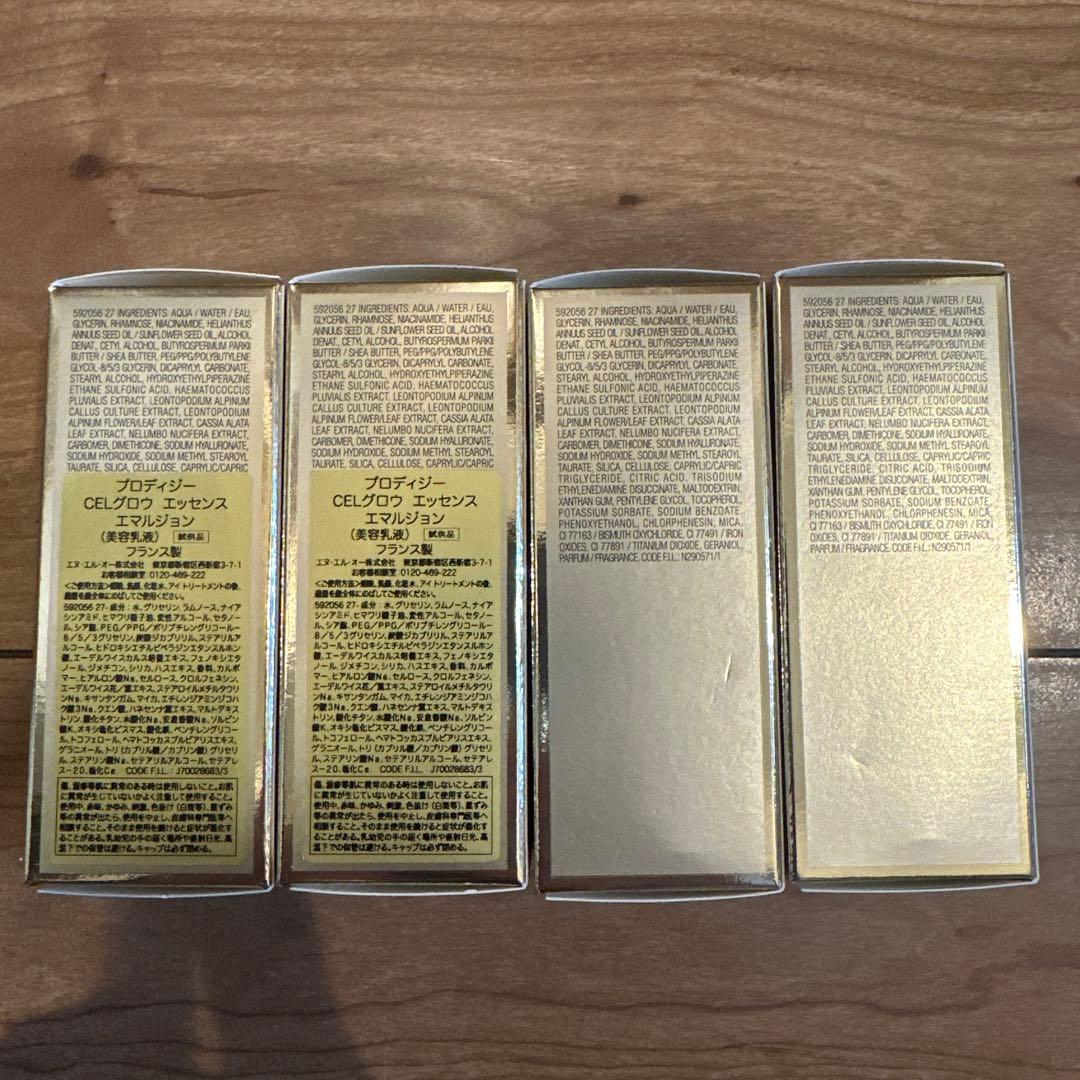 592056 27 INGREDIENTS: AQUA / WATER / EAU,
GLYCERIN, RHAMNOSE, NIACINAMIDE, HELIANTHUS
ANNUUS SEED OIL / SUNFLOWER SEED OIL, ALCOHOL
DENAT., CETYL ALCOHOL, BUTYROSPERMUM PARKII
BUTTER / SHEA BUTTER, PEG/PPG/POLYBUTYLENE
GLYCOL-8/5/3 GLYCERIN, DICAPRYLYL CARBONATE,
STEARYL ALCOHOL, HYDROXYETHYLPIPERAZINE
ETHANE SULFONIC ACID, HAEMATOCOCCUS
PLUVIALIS EXTRACT, LEONTOPODIUM ALPINUM
CALLUS CULTURE EXTRACT, LEONTOPODIUM
ALPINUM FLOWER/LEAF EXTRACT, CASSIA ALATA
LEAF EXTRACT, NELUMBO NUCIFERA EXTRACT,
CARBOMER, DIMETHICONE, SODIUM HYALURONATE,
SODIUM HYDROXIDE, SODIUM METHYL STEAROYL
TAURATE, SILICA, CELLULOSE, CAPRYLIC/CAPRIC
プロディジー
CELグロウ エッセンス
エマルジョン
(美容乳液) 試供品
フランス製
エヌ・エル・オー株式会社 東京都新宿区西新宿3-7-1
お客様相談室 0120-469-222
592056 27-成分:水、グリセリン、ラムノース、ナイア
シンアミド、ヒマワリ種子油、変性アルコール、セタノー
ル、シア脂、PEG/PPG/ポリブチレングリコール-
8/5/3グリセリン、炭酸ジカプリリル、ステアリルア
ルコール、ヒドロキシエチルピペラジンエタンスルホン
酸、エーデルワイスカルス培養エキス、フェノキシエタ
ノール、ジメチコン、シリカ、ハスエキス、香料、カルボ
マー、ヒアルロン酸Na、セルロース、クロルフェネシン、
エーデルワイス花/葉エキス、ステアロイルメチルタウリ
ンNa、キサンタンガム、マイカ、エチレンジアミンジコハ
ク酸3Na、クエン酸、ハネセンナ葉エキス、マルトデキス
トリン、酸化チタン、水酸化Na、安息香酸Na、ソルビン
酸K、オキシ塩化ビスマス、酸化鉄、ペンチレングリコー
ル、トコフェロール、ヘマトコッカスプルビアリスエキス、
ゲラニオール、トリ(カプリル酸/カプリン酸)グリセリ
ル、ステアリン酸Na、セテアリルアルコール、セテアレ
ス-20、塩化Ca CODE F.I.L. J70028683/3
傷、湿疹等肌に異常のある時は使用しないこと。お肌
に異常が生じていないかよく注意して使用すること。
使用中、赤味、かゆみ、刺激、色抜け(白斑等)、黒ずみ
等の異常が出たら、使用を中止し、皮膚科専門医等へ
相談すること。そのまま使用を続けると症状が悪化す
ることがある。乳幼児の手の届く場所や直射日光、高
温下での保管は避ける。キャップは必ず閉める。
592056 27 INGREDIENTS: AQUA / WATER / EAU,
GLYCERIN, RHAMNOSE, NIACINAMIDE, HELIANTHUS
ANNUUS SEED OIL / SUNFLOWER SEED OIL, ALCOHOL
DENAT., CETYL ALCOHOL, BUTYROSPERMUM PARKII
BUTTER / SHEA BUTTER, PEG/PPG/POLYBUTYLENE
GLYCOL-8/5/3 GLYCERIN, DICAPRYLYL CARBONATE,
STEARYL ALCOHOL, HYDROXYETHYLPIPERAZINE
ETHANE SULFONIC ACID, HAEMATOCOCCUS
PLUVIALIS EXTRACT, LEONTOPODIUM ALPINUM
CALLUS CULTURE EXTRACT, LEONTOPODIUM
ALPINUM FLOWER/LEAF EXTRACT, CASSIA ALATA
LEAF EXTRACT, NELUMBO NUCIFERA EXTRACT,
CARBOMER, DIMETHICONE, SODIUM HYALURONATE,
SODIUM HYDROXIDE, SODIUM METHYL STEAROYL
TAURATE, SILICA, CELLULOSE, CAPRYLIC/CAPRIC
プロディジー
CELグロウ エッセンス
エマルジョン
(美容乳液) 試供品
フランス製
エヌ・エル・オー株式会社 東京都新宿区西新宿3-7-1
お客様相談室 0120-469-222
592056 27-成分:水、グリセリン、ラムノース、ナイア
シンアミド、ヒマワリ種子油、変性アルコール、セタノー
ル、シア脂、PEG/PPG/ポリブチレングリコール-
8/5/3グリセリン、炭酸ジカプリリル、ステアリルア
ルコール、ヒドロキシエチルピペラジンエタンスルホン
酸、エーデルワイスカルス培養エキス、フェノキシエタ
ノール、ジメチコン、シリカ、ハスエキス、香料、カルボ
マー、ヒアルロン酸Na、セルロース、クロルフェネシン、
エーデルワイス花/葉エキス、ステアロイルメチルタウリ
ンNa、キサンタンガム、マイカ、エチレンジアミンジコハ
ク酸3Na、クエン酸、ハネセンナ葉エキス、マルトデキス
トリン、酸化チタン、水酸化Na、安息香酸Na、ソルビン
酸K、オキシ塩化ビスマス、酸化鉄、ペンチレングリコー
ル、トコフェロール、ヘマトコッカスプルビアリスエキス、
ゲラニオール、トリ(カプリル酸/カプリン酸)グリセリ
ル、ステアリン酸Na、セテアリルアルコール、セテアレ
ス-20、塩化Ca CODE F.I.L. J70028683/3
傷、湿疹等肌に異常のある時は使用しないこと。お肌
に異常が生じていないかよく注意して使用すること。
使用中、赤味、かゆみ、刺激、色抜け(白斑等)、黒ずみ
等の異常が出たら、使用を中止し、皮膚科専門医等へ
相談すること。そのまま使用を続けると症状が悪化す
ることがある。乳幼児の手の届く場所や直射日光、高
温下での保管は避ける。キャップは必ず閉める。
592056 27 INGREDIENTS: AQUA / WATER / EAU,
GLYCERIN, RHAMNOSE, NIACINAMIDE, HELIANTHUS
ANNUUS SEED OIL / SUNFLOWER SEED OIL, ALCOHOL
DENAT., CETYL ALCOHOL, BUTYROSPERMUM PARKII
BUTTER / SHEA BUTTER, PEG/PPG/POLYBUTYLENE
GLYCOL-8/5/3 GLYCERIN, DICAPRYLYL CARBONATE,
STEARYL ALCOHOL, HYDROXYETHYLPIPERAZINE
ETHANE SULFONIC ACID, HAEMATOCOCCUS
PLUVIALIS EXTRACT, LEONTOPODIUM ALPINUM
CALLUS CULTURE EXTRACT, LEONTOPODIUM
ALPINUM FLOWER/LEAF EXTRACT, CASSIA ALATA
LEAF EXTRACT, NELUMBO NUCIFERA EXTRACT,
CARBOMER, DIMETHICONE, SODIUM HYALURONATE,
SODIUM HYDROXIDE, SODIUM METHYL STEAROYL
TAURATE, SILICA, CELLULOSE, CAPRYLIC/CAPRIC
TRIGLYCERIDE, CITRIC ACID, TRISODIUM
ETHYLENEDIAMINE DISUCCINATE, MALTODEXTRIN,
XANTHAN GUM, PENTYLENE GLYCOL, TOCOPHEROL,
POTASSIUM SORBATE, SODIUM BENZOATE,
PHENOXYETHANOL, CHLORPHENESIN, MICA,
CI 77163 / BISMUTH OXYCHLORIDE, CI 77491 / IRON
OXIDES, CI 77891 / TITANIUM DIOXIDE, GERANIOL,
PARFUM / FRAGRANCE. CODE F.I.L. N290571/1
592056 27 INGREDIENTS: AQUA / WATER / EAU,
GLYCERIN, RHAMNOSE, NIACINAMIDE, HELIANTHUS
ANNUUS SEED OIL / SUNFLOWER SEED OIL, ALCOHOL
DENAT., CETYL ALCOHOL, BUTYROSPERMUM PARKII
BUTTER / SHEA BUTTER, PEG/PPG/POLYBUTYLENE
GLYCOL-8/5/3 GLYCERIN, DICAPRYLYL CARBONATE,
STEARYL ALCOHOL, HYDROXYETHYLPIPERAZINE
ETHANE SULFONIC ACID, HAEMATOCOCCUS
PLUVIALIS EXTRACT, LEONTOPODIUM ALPINUM
CALLUS CULTURE EXTRACT, LEONTOPODIUM
ALPINUM FLOWER/LEAF EXTRACT, CASSIA ALATA
LEAF EXTRACT, NELUMBO NUCIFERA EXTRACT,
CARBOMER, DIMETHICONE, SODIUM HYALURONATE,
SODIUM HYDROXIDE, SODIUM METHYL STEAROYL
TAURATE, SILICA, CELLULOSE, CAPRYLIC/CAPRIC
TRIGLYCERIDE, CITRIC ACID, TRISODIUM
ETHYLENEDIAMINE DISUCCINATE, MALTODEXTRIN,
XANTHAN GUM, PENTYLENE GLYCOL, TOCOPHEROL,
POTASSIUM SORBATE, SODIUM BENZOATE,
PHENOXYETHANOL, CHLORPHENESIN, MICA,
CI 77163 / BISMUTH OXYCHLORIDE, CI 77491 / IRON
OXIDES, CI 77891 / TITANIUM DIOXIDE, GERANIOL,
PARFUM / FRAGRANCE. CODE F.I.L. N290571/1